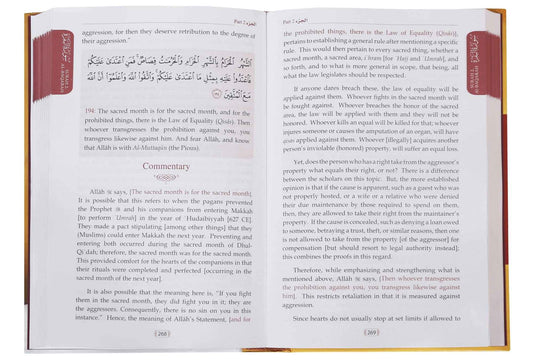 Part 2 الجزء
aggression, for then they deserve retribution to the degree
of their aggression."
الشَّهْرُ الْحَرَامُ بِالشَّهْرِ الْحَرَامِ وَالْحُرُمَاتُ قِصَاصٌ فَمَنِ اعْتَدَى عَلَيْكُمْ
فَاعْتَدُوا عَلَيْهِ بِمِثْلِ مَا اعْتَدَى عَلَيْكُمْ وَاتَّقُوا اللَّهَ وَاعْلَمُوا أَنَّ اللَّهَ
مَعَ الْمُتَّقِينَ
194. The sacred month is for the sacred month, and for the
prohibited things, there is the Law of Equality (Qisâs). Then
whoever transgresses the prohibition against you, you
transgress likewise against him. And fear Allâh, and know
that Allâh is with Al-Muttaqûn (the Pious).
Commentary
Allâh says, [The sacred month is for the sacred month].
It is possible that this refers to when the pagans prevented
the Prophet and his companions from entering Makkah
[to perform 'Umrah] in the year of Hudaibiyyah [627 CE].
They made a pact stipulating [among other things] that they
(Muslims) could enter Makkah the next year. Preventing and
entering both occurred during the sacred month of Dhul-
Qi'dah; therefore, the sacred month was for the sacred month.
This provided comfort for the hearts of the companions in that
their rituals were completed and perfected [occurring in the
sacred month of the next year].
It is also possible that the meaning here is, "If you fight
them in the sacred month, they did fight you in it; they are
the aggressors. Consequently, there is no sin on you in this
instance." Hence, the meaning of Allâh's Statement, [and for
268
Part 2 الجزء
the prohibited things, there is the Law of Equality (Qisâs)],
pertains to establishing a general rule after mentioning a specific
rule. This would then pertain to every sacred thing, whether a
sacred month, a sacred area, ihram [for Hajj and] 'Umrah, and
so forth, and to what is more general in scope, that being, all
what the law legislates should be respected.
If anyone dares breach these, the law of equality will be
applied against them. Whoever fights in the sacred month will
be fought against. Whoever breaches the honor of the sacred
area, the law will be applied with them and they will not be
honored. Whoever kills an equal will be killed for that; whoever
injures someone or causes the amputation of an organ, will have
qisâs applied against them. Whoever [illegally] acquires another
person's inviolable (honored) property, will suffer an equal loss.
Yet, does the person who has a right take from the aggressor's
property what equals their right, or not? There is a difference
between the scholars on this topic. But, the more established
opinion is that if the cause is apparent, such as a guest who was
not properly hosted, or a wife or a relative who were denied
their due maintenance by those required to spend on them,
then, they are allowed to take their right from the maintainer's
property. If the cause is concealed, such as denying a loan owed
to someone, betraying a trust, theft, or similar reasons, then one
is not allowed to take from the property [of the aggressor] for
compensation [but should resort to legal authority instead];
this combines the proofs in this regard.
Therefore, while emphasizing and strengthening what is
mentioned above, Allâh says, [Then whoever transgresses
the prohibition against you, you transgress likewise against
him]. This restricts retaliation in that it is measured against
aggression.
Since hearts do not usually stop at set limits if allowed to
269